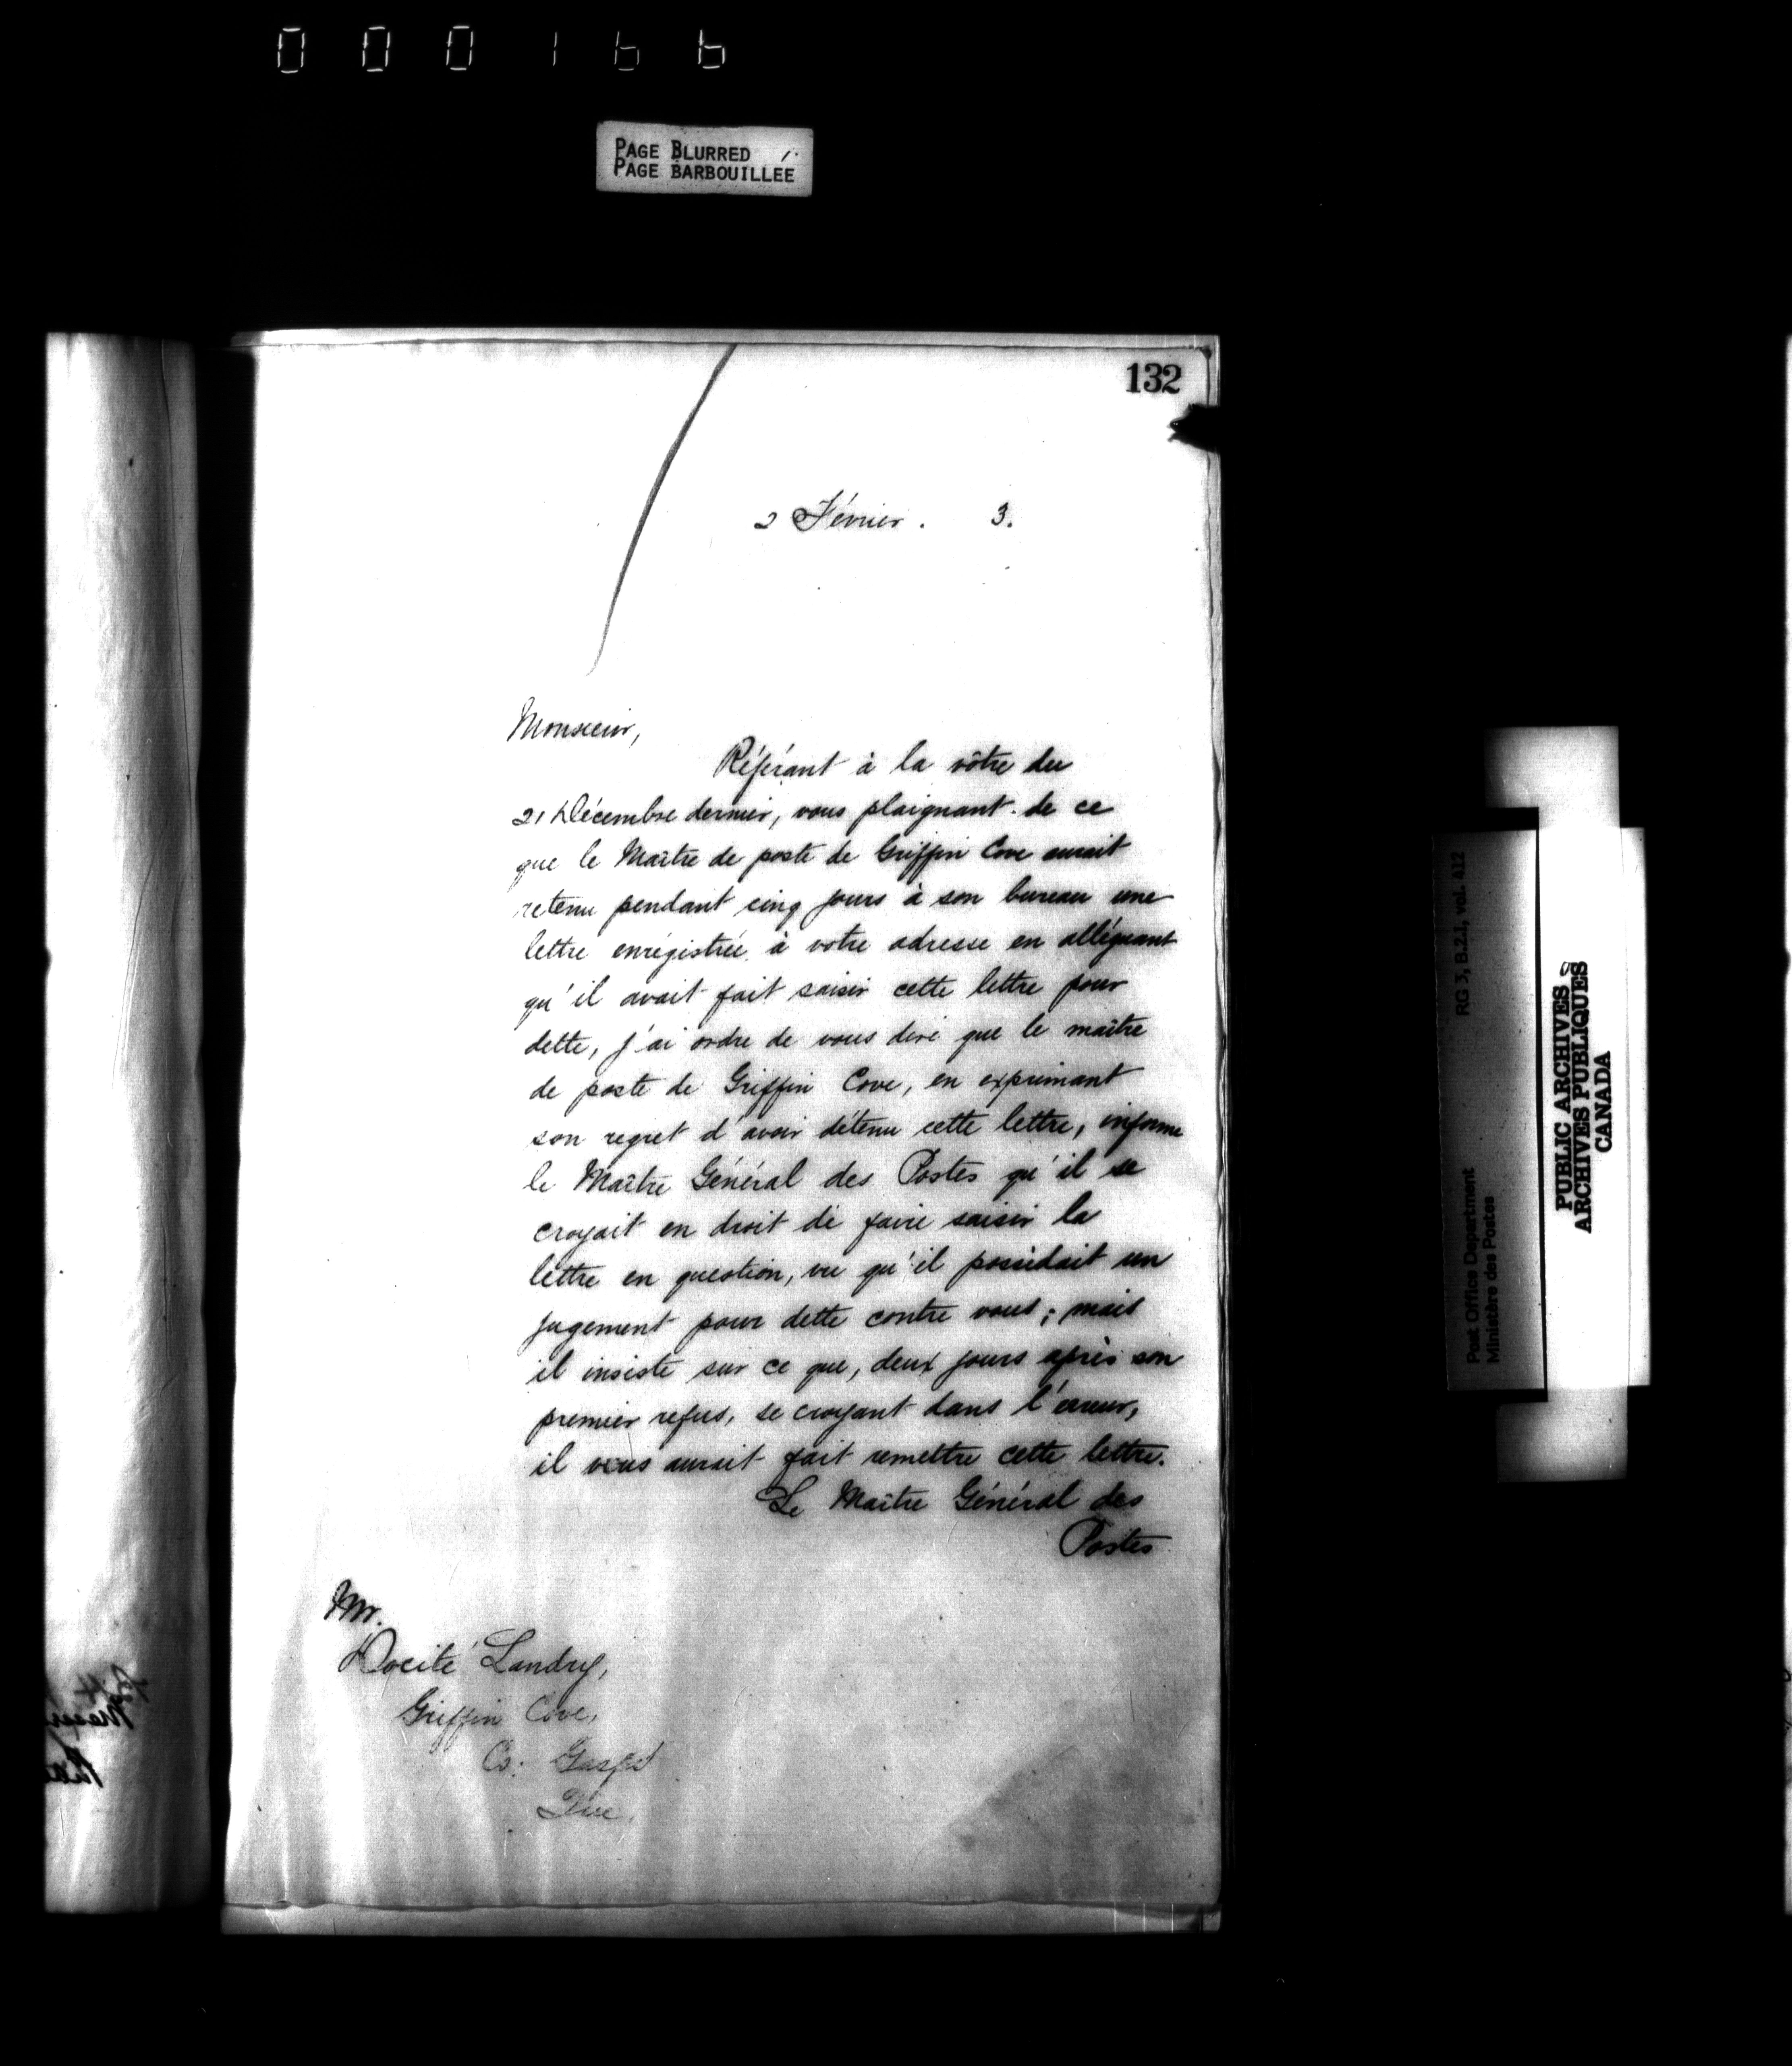 000166
PAGE BLURRED
PAGE BARBOUILLÉE
132
2 Février. 3.
Monsieur,
Référant à la vôtre du
21 Décembre dernier, vous plaignant de ce
que le Maître de poste de Griffin Cove aurait
retenu pendant cinq jours à son bureau une
lettre enrégistrée à votre adresse en alléguant
qu'il avait fait saisir cette lettre pour
dette, j'ai ordre de vous dire que le maître
de poste de Griffin Cove, en exprimant
son regret d'avoir détenu cette lettre, informe
le Maître Général des Postes qu'il se
croyait en droit de faire saisir la
lettre en question, vu qu'il possédait un
jugement pour dette contre vous; mais
il insiste sur ce que, deux jours après son
premier refus, se croyant dans l'erreur,
il vous aurait fait remettre cette lettre.
Le Maître Général des
Postes
Mr.
Docité Landry,
Griffin Cove,
Co: Gaspé
Que.
RG 3, B.2.1, vol. 412
Post Office Department
Ministère des Postes
PUBLIC ARCHIVES
ARCHIVES PUBLIQUES
CANADA